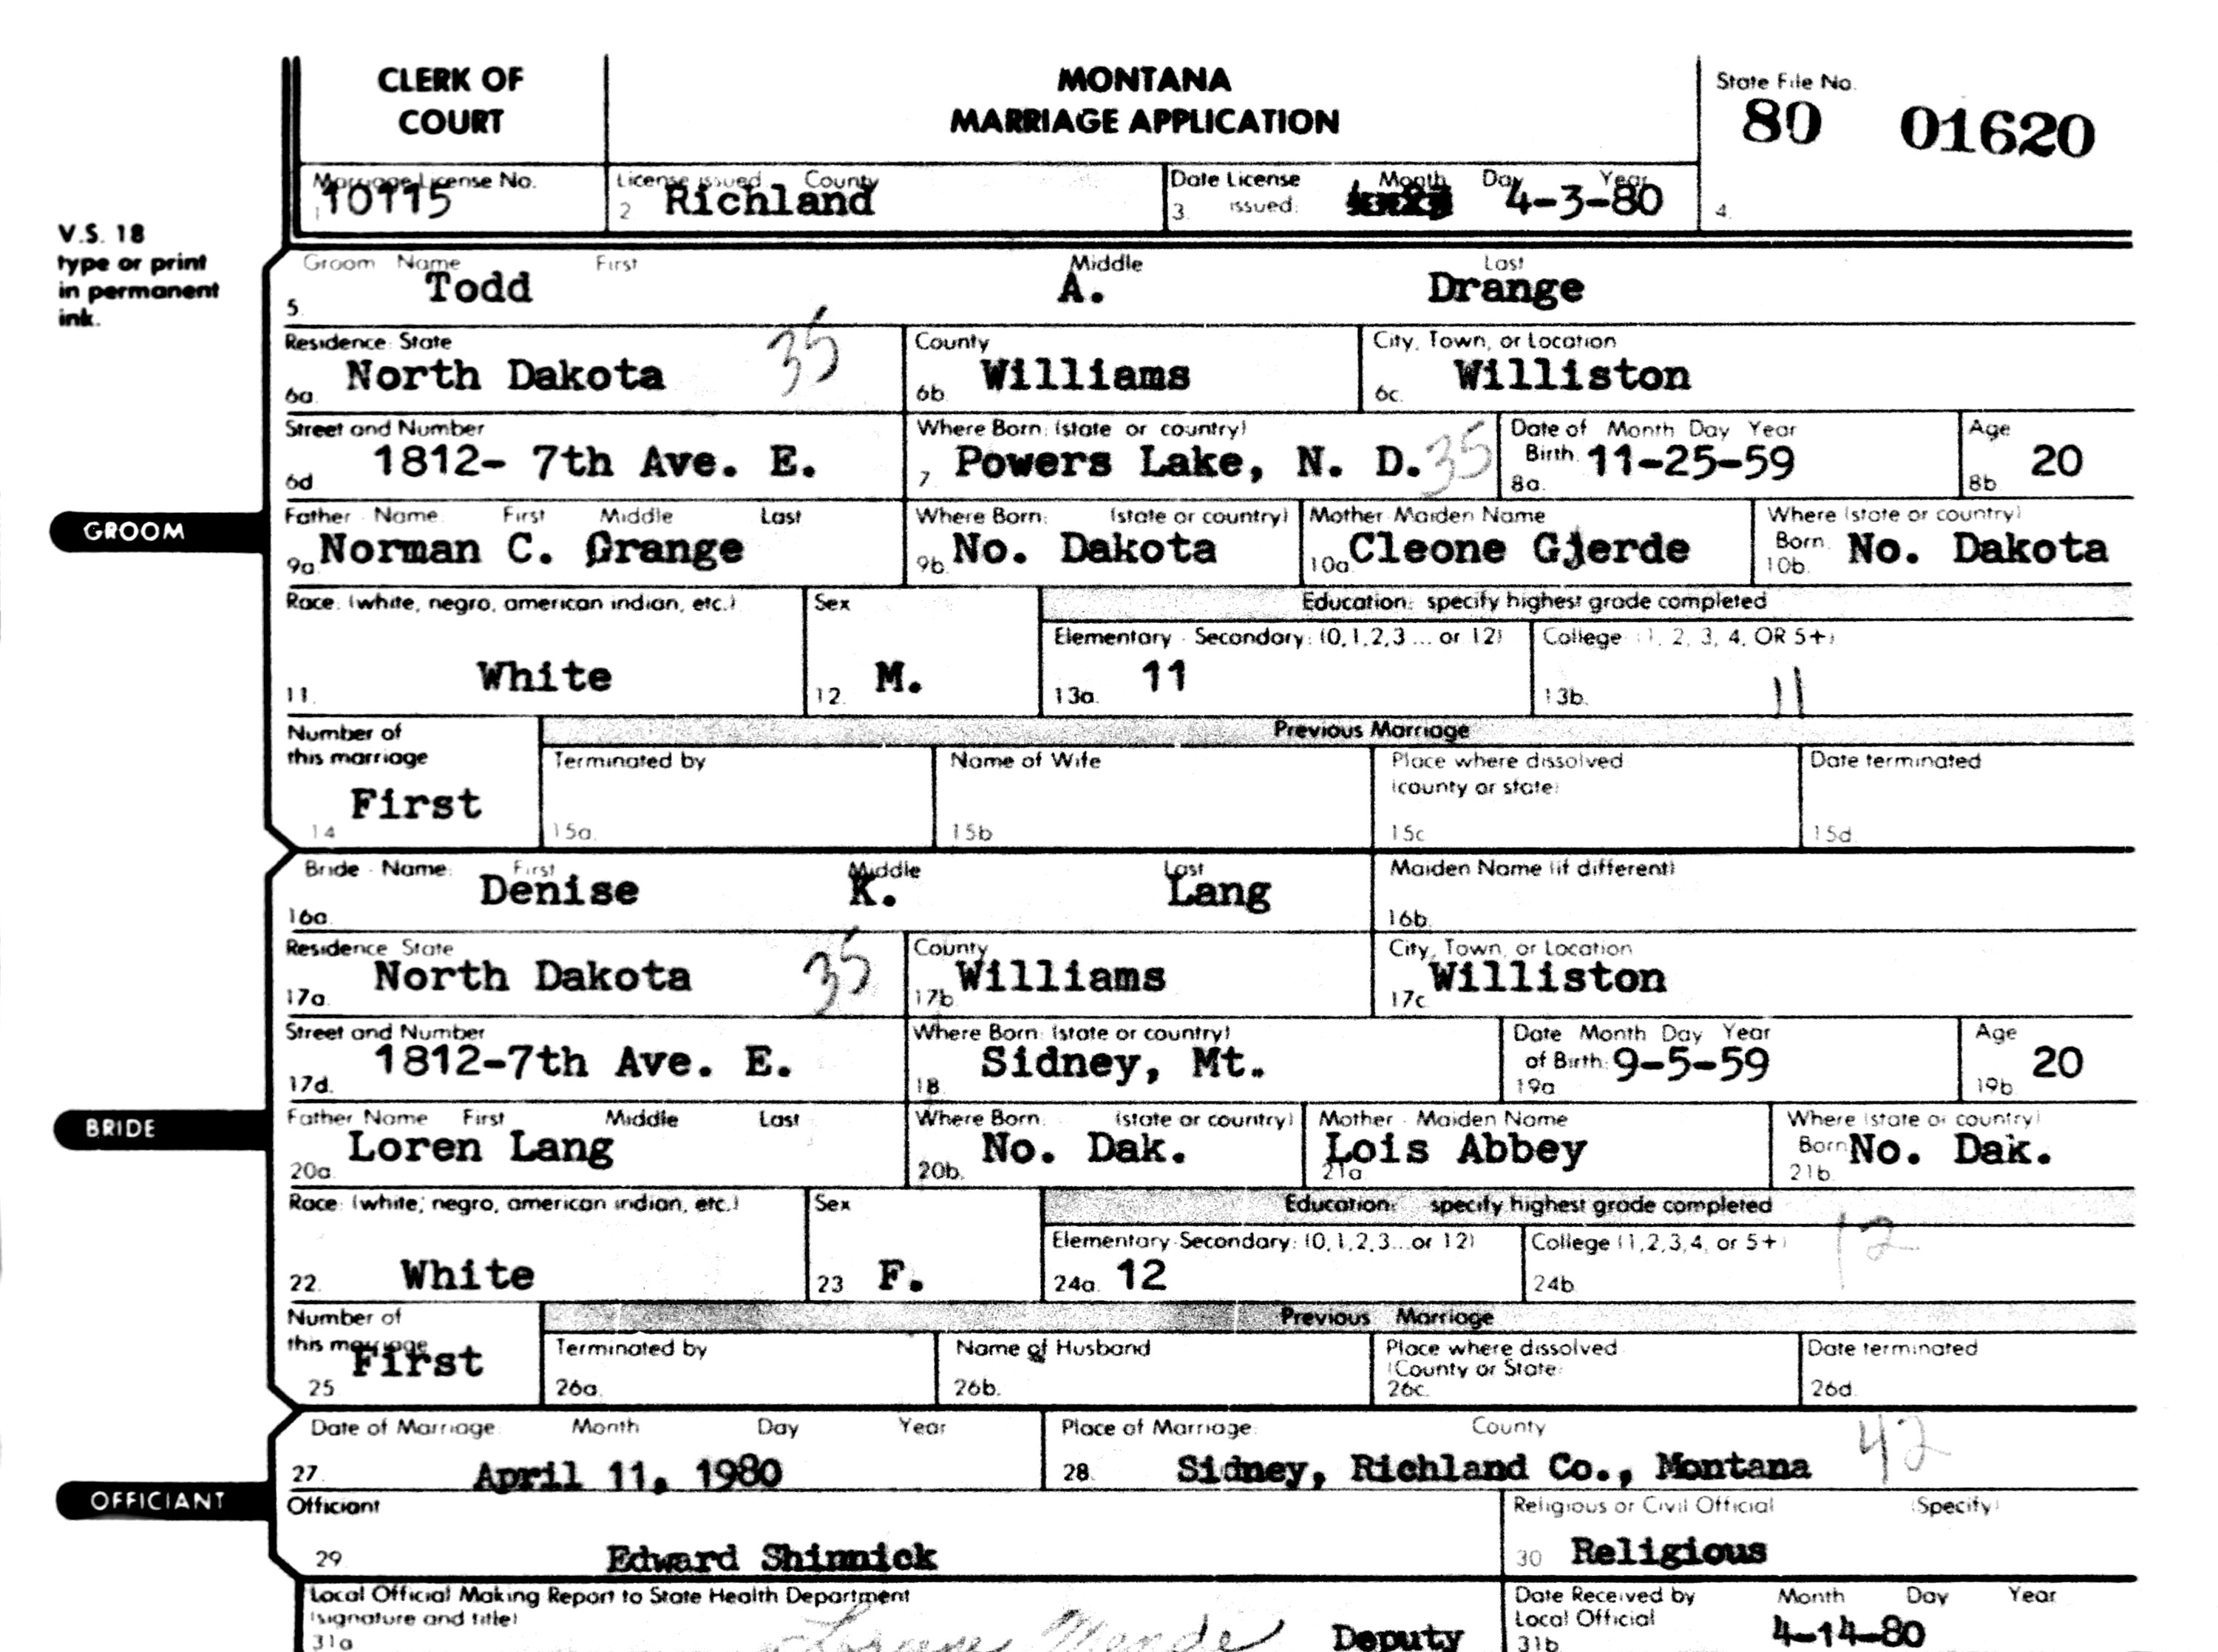 CLERK OF COURT
MONTANA MARRIAGE APPLICATION
State File No.
80 01620
4.
Marriage License No.
1 10115
License issued County
2 Richland
Date License issued: Month Day Year
3. 4-3-80
V.S. 18
type or print
in permanent
ink.
GROOM
Groom Name First Middle Last
5. Todd A. Drange
Residence: State County City, Town, or Location
6a. North Dakota 35 6b. Williams 6c. Williston
Street and Number Where Born: (state or country) Date of Birth: Month Day Year Age
6d 1812- 7th Ave. E. 7 Powers Lake, N. D. 35 8a. 11-25-59 8b 20
Father - Name: First Middle Last Where Born: (state or country) Mother-Maiden Name Where Born: (state or country)
9a Norman C. Grange 9b. No. Dakota 10a. Cleone Gjerde 10b. No. Dakota
Race: (white, negro, american indian, etc.) Sex Education: specify highest grade completed
Elementary - Secondary: (0,1,2,3 ... or 12) College (1, 2, 3, 4, OR 5+)
11. White 12. M. 13a. 11 13b. 11
Number of this marriage Previous Marriage
Terminated by Name of Wife Place where dissolved (county or state) Date terminated
14 First 15a. 15b 15c 15d.
BRIDE
Bride - Name: First Middle Last Maiden Name (if different)
16a. Denise K. Lang 16b.
Residence State County City, Town, or Location
17a. North Dakota 35 17b Williams 17c Williston
Street and Number Where Born: (state or country) Date of Birth: Month Day Year Age
17d. 1812-7th Ave. E. 18 Sidney, Mt. 19a 9-5-59 19b 20
Father Name First Middle Last Where Born: (state or country) Mother - Maiden Name Where Born (state or country)
20a Loren Lang 20b. No. Dak. 21a Lois Abbey 21b. No. Dak.
Race: (white; negro, american indian, etc.) Sex Education: specify highest grade completed
Elementary-Secondary: (0,1,2,3...or 12) College (1,2,3,4, or 5+) 12
22. White 23 F. 24a. 12 24b.
Number of this marriage Previous Marriage
Terminated by Name of Husband Place where dissolved (County or State) Date terminated
25 First 26a. 26b. 26c. 26d.
OFFICIANT
Date of Marriage: Month Day Year Place of Marriage: County
27. April 11, 1980 28. Sidney, Richland Co., Montana 42
Officiant Religious or Civil Official (Specify)
29 Edward Shinnick 30 Religious
Local Official Making Report to State Health Department Date Received by Month Day Year
(signature and title) Local Official
31a Deputy 31b. 4-14-80